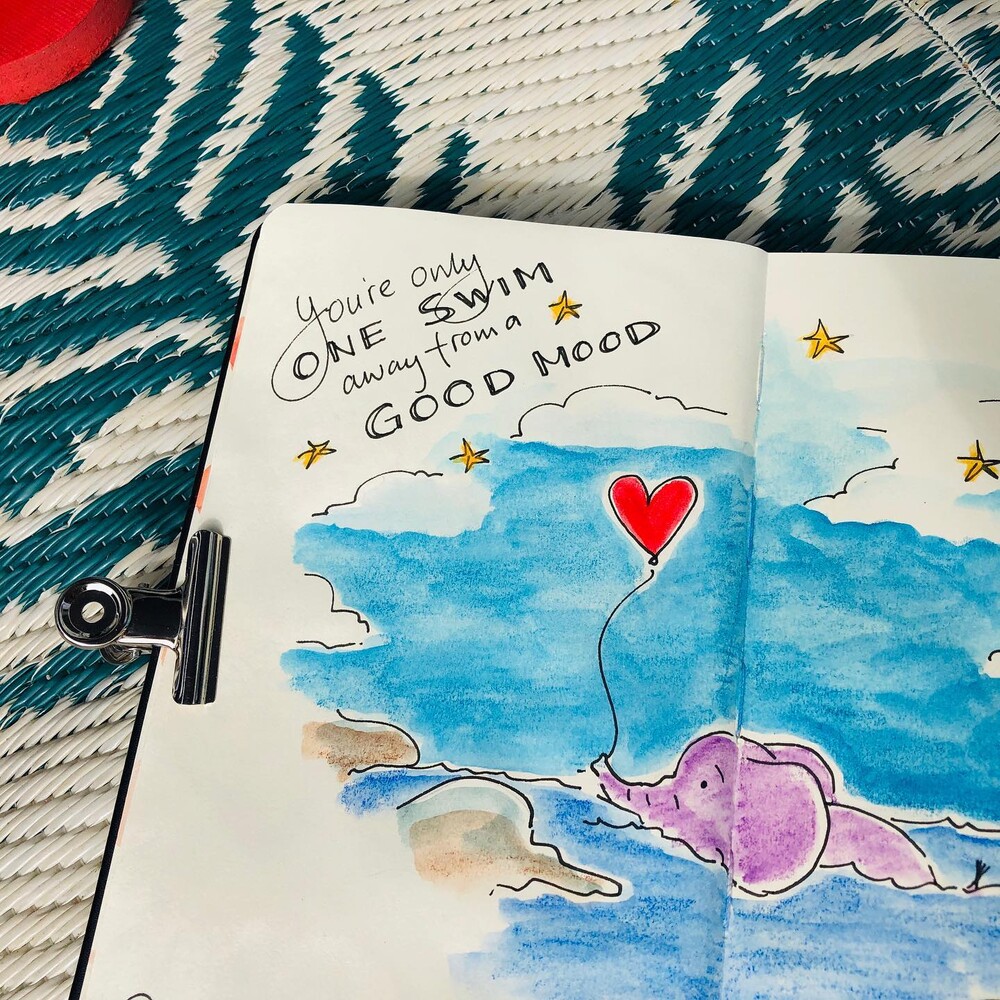 You're only
ONE SWIM
away from a
GOOD MOOD